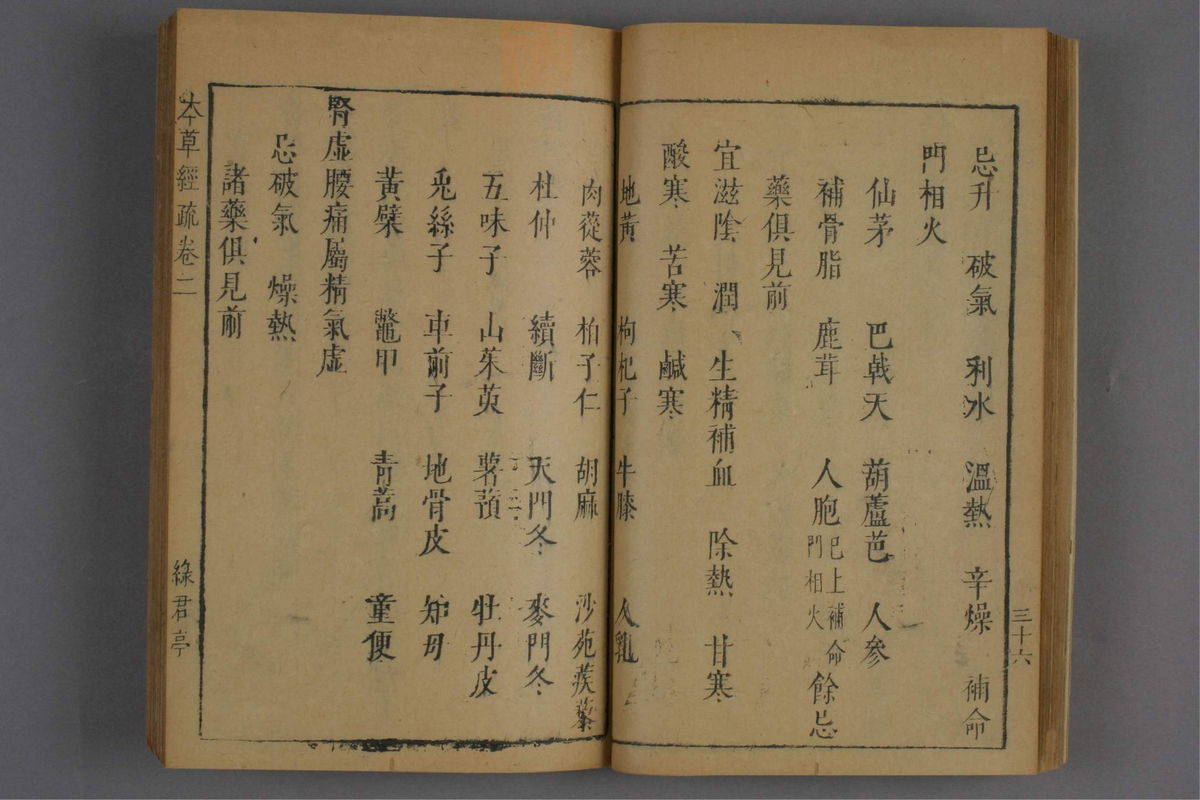 忌升　破氣　利水　溫熱　辛燥　補命
門相火
仙茅　巴戟天　葫蘆芭　人參
補骨脂　鹿茸　人胞巳上補命門相火　餘忌
藥俱見前
宜滋陰　潤　生精補血　除熱　甘寒
酸寒　苦寒　鹹寒
地黃　枸杞子　牛膝　人乳
肉蓯蓉　柏子仁　胡麻　沙苑蒺藜
杜仲　續斷　天門冬　麥門冬
五味子　山茱萸　薯蕷　牡丹皮
兎絲子　車前子　地骨皮　知母
黃檗　鼈甲　靑蒿　童便
腎虛腰痛屬精氣虛
忌破氣　燥熱
諸藥俱見前
三十六
本草經疏卷二
綠君亭